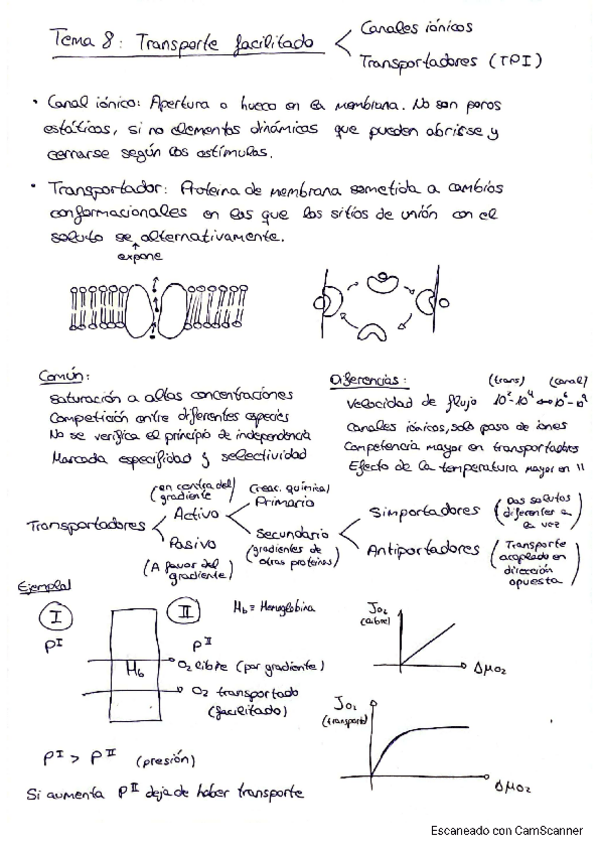 Tema 8: Transporte facilitado
Canales iónicos
Transportadores (TPI)
• Canal iónico: Apertura o hueco en la membrana. No son poros
estáticos, si no elementos dinámicos que pueden abrirse y
cerrarse según los estímulos.
• Transportador: Proteína de membrana sometida a cambios
conformacionales en los que los sitios de unión con el
soluto se alternativamente.
expone
Común:
Saturación a altas concentraciones
Competición entre diferentes especies
No se verifica el principio de independencia
Marcada especifidad y selectividad
Diferencias:
(trans) (canal)
Velocidad de flujo 10²-10⁴ ⇔ 10⁶-10⁹
Canales iónicos, solo paso de iones
Competencia mayor en transportadores
Efecto de la temperatura mayor en 11
Transportadores
(en contra del
gradiente)
Activo
Pasivo
(A favor del
gradiente)
(reac. química)
Primario
Secundario
(gradientes de
otras proteínas)
Simportadores
(Dos solutos
diferentes a
la vez)
Antiportadores
(Transporte
acoplado en
dirección
opuesta)
Ejemplo!
I
II
Hb = Hemoglobina
Pᴵ
Pᴵᴵ
Hb
O₂ libre (por gradiente)
O₂ transportado
(facilitado)
Jo₂
(libre)
ΔμO₂
Jo₂
(transporte)
ΔμO₂
Pᴵ > Pᴵᴵ (presión)
Si aumenta Pᴵᴵ deja de haber transporte
Escaneado con CamScanner